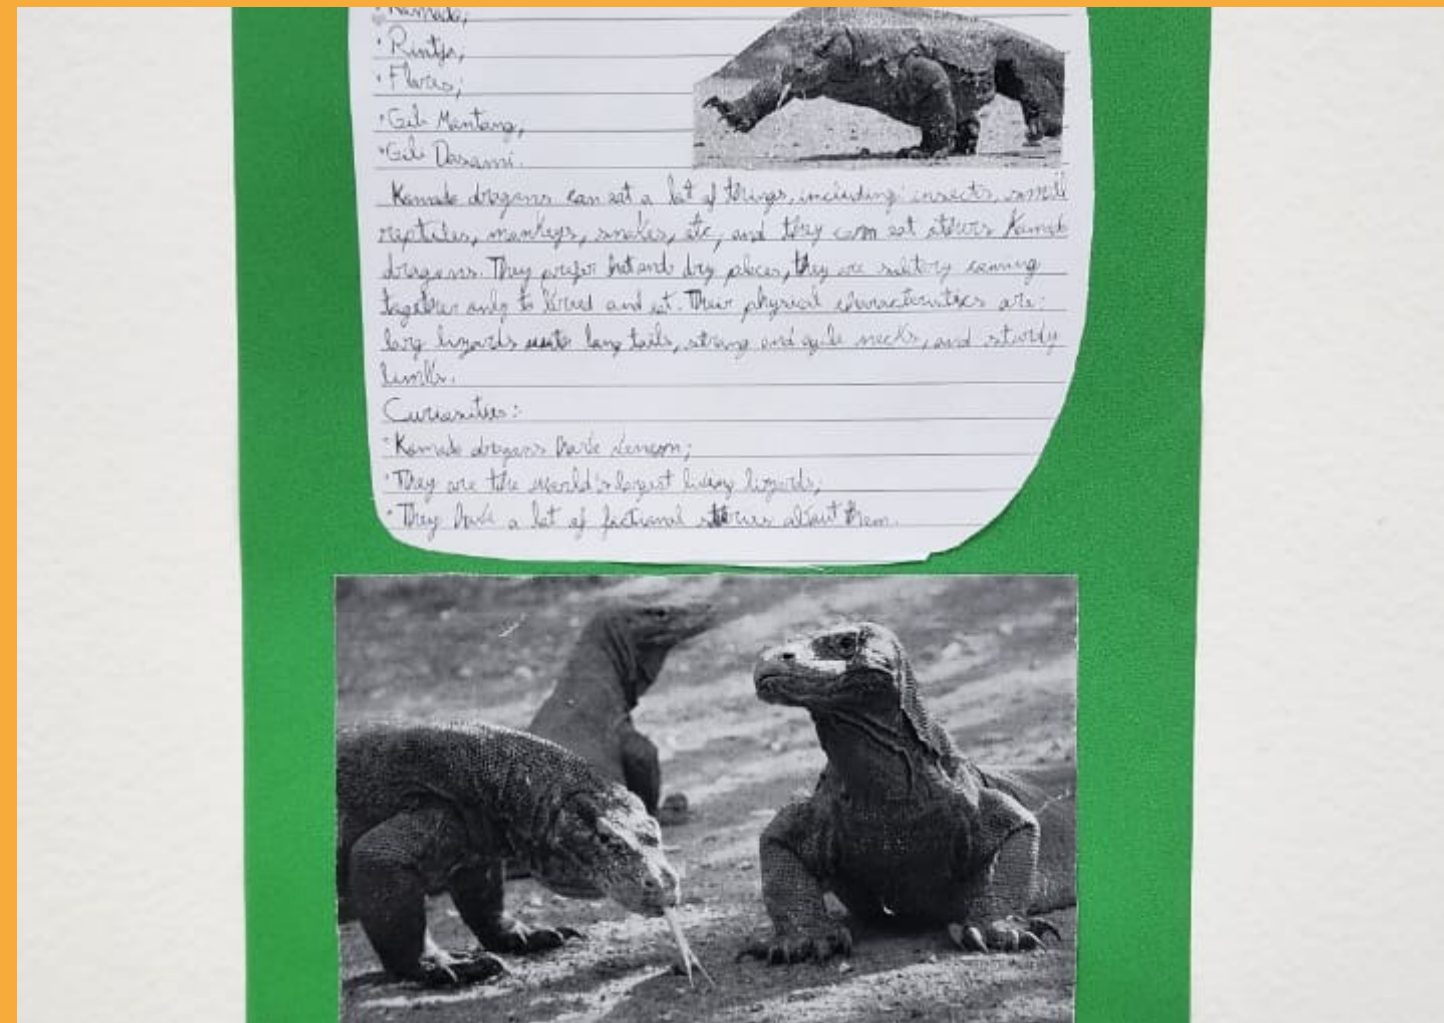 • Komodo;
• Rintja;
• Flores;
• Gili Montang;
• Gili Dasami.
Komodo dragons can eat a lot of things, including: insects, small
reptiles, monkeys, snakes, etc, and they can eat others Komodo
dragons. They prefer hot and dry places, they are solitary coming
together only to breed and eat. Their physical characteristics are:
larg lizards with long tails, strong and agile necks, and sturdy
limbs.
Curiosities:
• Komodo dragons have venom;
• They are the world's largest living lizards;
• They have a lot of fictional stories about them.